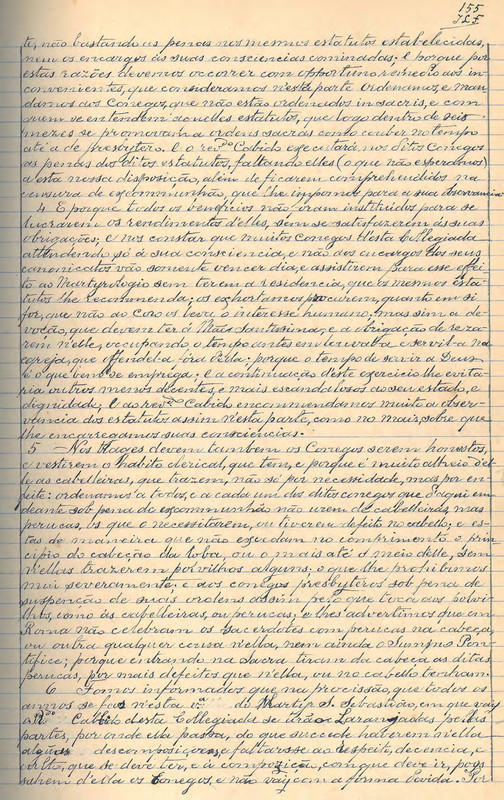 155
te, não bastando as penas nos mesmos estatutos estabelecidas,
nem os encargos ás suas consciencias cominadas; E porque por
estas razões devemos occorrer com opportuno remedio aos in-
convenientes, que consideramos nesta parte ordenamos e man-
damos aos Conegos, que não estão ordenados in sacris, e com
quem se entendem aquelles estatutos, que logo dentro de seis
mezes se promovam a ordens sacras como couber no tempo
até a de presbytero. E o rev.do Cabido executará nos ditos Conegos
as penas do ditos estatutos, faltando elles (o que não esperamos)
a esta nossa disposição, alem de ficarem comprehendidos na
censura de excommunhão, que lhe impomos para a sua observancia
4. E porque todos os beneficios não foram instituidos para se
lucrarem os rendimentos d'elles, sem se satisfazerem ás suas
obrigações; e nos constar que muitos conegos d'esta Collegiada
attendendo só á sua consciencia, e não aos encargos dos seus
canonicatos vão somente vencer dia, e assistirem para esse effei-
to ao Martyrologio sem terem a residencia, que os mesmos esta-
tutos lhe recommenda; os exhortamos procurem, quanto em si
for, que não ao Coro os leva o interesse humano; mas sim a de-
voção, que devem ter á Mãe Santissima; e a obrigação de reza-
rem n'elle, occupando o tempo antes em louval-a e servil-a na
egreja, que offendel-a fóra d'ella: porque o tempo de servir a Deus
é o que bem se emprega: E a continuação d'este exercicio lhe evita-
ria outros menos decentes, e mais escandalosos ao seu estado, e
dignidade; E ao rev.do Cabido encommendamos muito a obser-
vancia dos estatutos assim n'esta parte, como no mais, sobre que
lhe encarregamos suas consciencias.
5 Nos trages devem tambem os Conegos serem honestos,
e vestirem o habito clerical, que tem, e porque é muito alheio d'el-
le as cabelleiras, que trazem, não só por necessidade, mas por en-
feite: ordenamos a todos, e a cada um dos ditos conegos que d'aqui em
deante sob pena de excommunhão não uzem de cabelleiras, mas
perucas, os que o necessitarem, ou tiverem defeito no cabello; e es-
tas de maneira que não excedam no comprimento o prin-
cipio do cabeção da loba, ou o mais até o meio delle, sem
n'ellas trazerem polvilhos alguns, o que lhe prohibimos
mui severamente: e aos conegos presbyteros sob pena de
suspenção de suas ordens assim pelo que toca aos polvi-
lhos, como ás cabelleiras, ou perucas; e lhes advertimos que em
Roma não celebram os sacerdotes com perucas na cabeça,
ou outra qualquer cousa n'ella, nem ainda o Summo Pon-
tifice; porque entrando na Sacra tiram da cabeça as ditas
perucas, por mais defeitos que n'ella, ou no cabello tenham.
6 Fomos informados que na procissão, que todos os
annos se faz nesta v.a do Martyr S. Sebastião, em que vay
o R.do Cabido desta Collegiada se tirão Laranjadas pelas
partes, por onde ella passa, do que succede haverem n'ella
algũas descomposições, e faltar-se ao respeito, decencia, e
culto, que se deve ter, e á compozição, com que deve ir, pois
sahem d'ella os Conegos, e não vay com a forma devida. Por